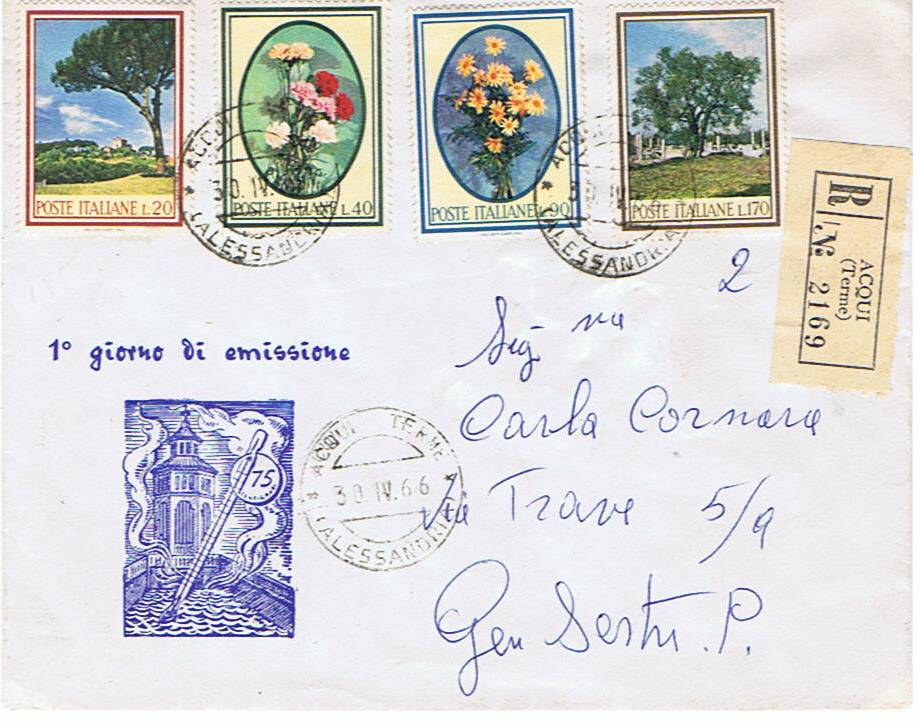 POSTE ITALIANE L.20
POSTE ITALIANE L.40
POSTE ITALIANE L.90
POSTE ITALIANE L.170
ACQUI
30.IV
(ALESSANDRIA
ACQUI
(ALESSANDRIA
R
ACQUI
(Terme)
N. 2169
2
1° giorno di emissione
75
ACQUI TERME
30.IV.66
(ALESSANDRIA
Sig na
Carla Cornara
Via Trave 5/9
Gen Sestri P.